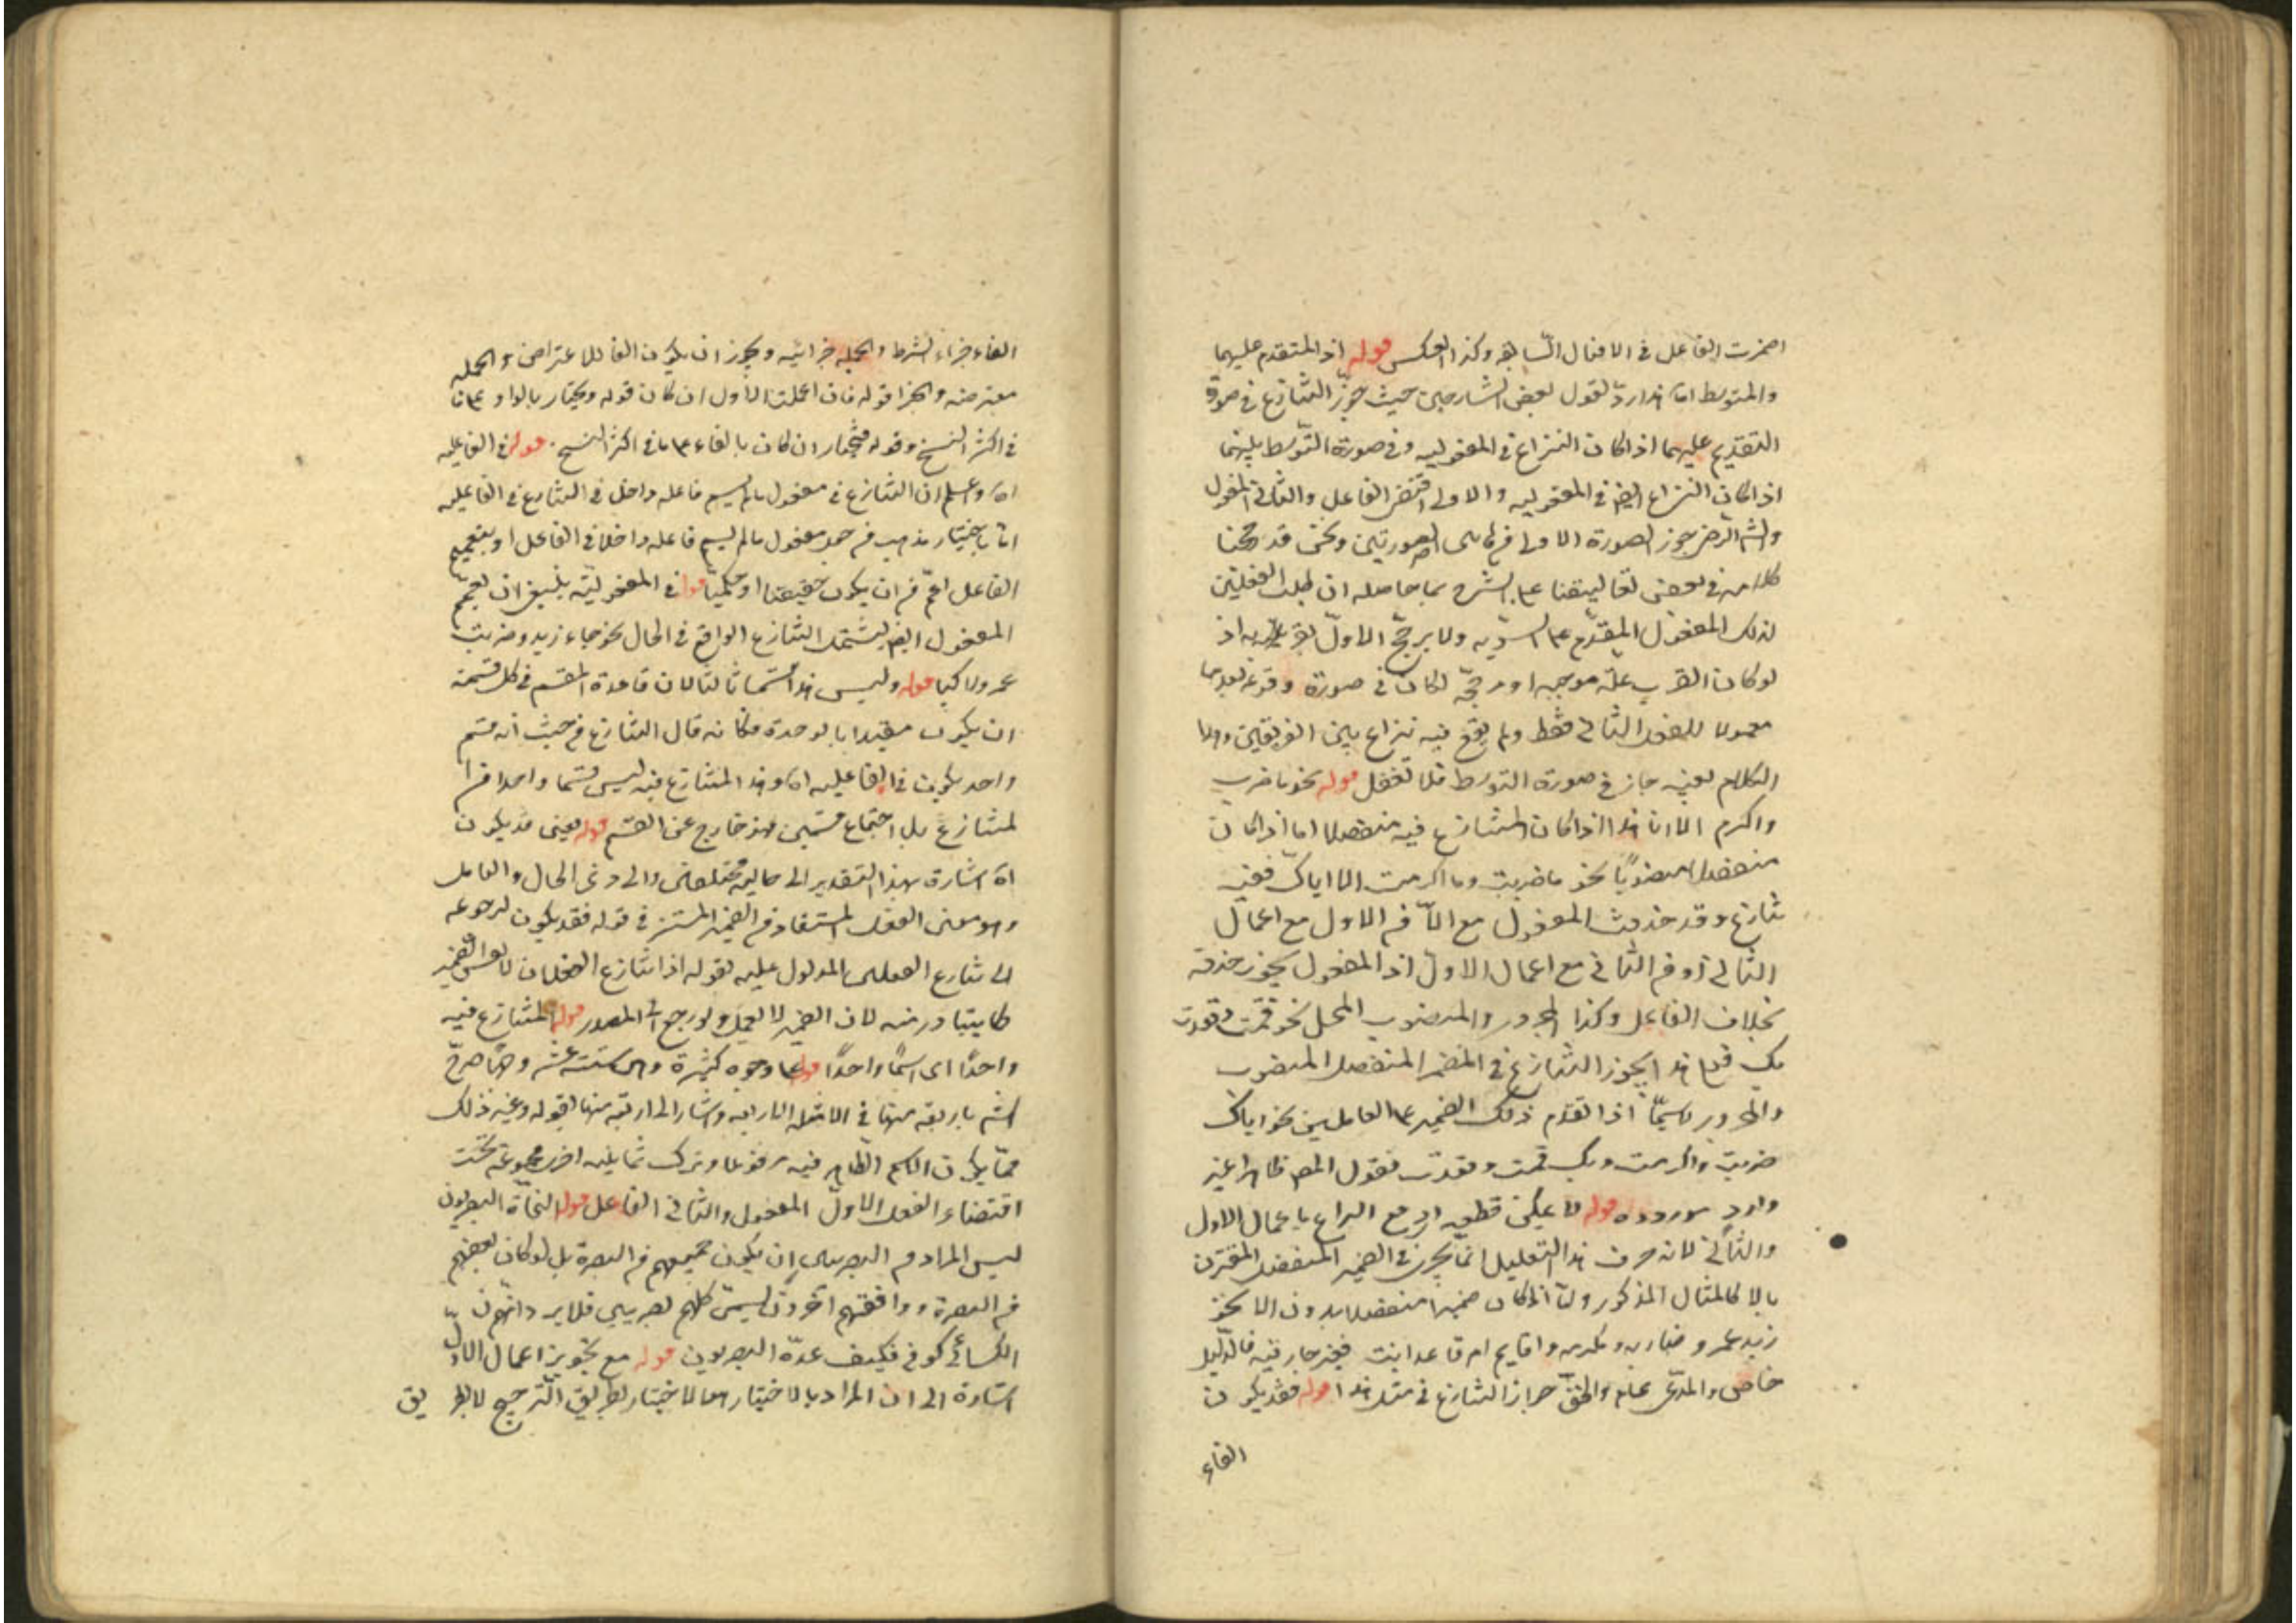 اضمرت الفاعل في الافعال السابقة وكذا العكس قوله اذ المتقدم عليهما
والمتوسط اه هذا ردّ لقول بعض الشارحين حيث جوّز التنازع في صورة
التقديم عليهما اذا كان النزاع في المفعولية وفي صورة التوسط بينهما
اذا كان النزاع ايضا في المفعولية والاول اقتضى الفاعل والثاني المفعول
والشم الرضي جوز الصورة الاولى من الصورتين ونحن قد
كلامه في بعض تعاليقنا على الشرح بما حاصله ان طلب الفعلين
لذلك المفعول المقدّم على السوية ولا يرجّح الاول اذ
لو كان القرب علّة موجبة او مرجّحة لكان في صورة وقوعه بعدهما
معمولا للفعل الثاني فقط ولم يقع فيه نزاع بين الفريقين وهذا
الكلام بعينه جاز في صورة التوسط فلا تغفل قوله نحو ما ضرب
واكرم الا انا هذا اذا كان المتنازع فيه منفصلا اما اذا كان
منفصلا منصوبًا نحو ما ضربت وما اكرمت الا اياك ففيه
تنازع وقد حذفت المفعول مع الاّ من الاول مع اعمال
الثاني او من الثاني مع اعمال الاول اذ المفعول يجوز حذفه
بخلاف الفاعل وكذا المجرور والمنصوب المحل نحو قمت وقعدت
بك فعلى هذا يجوز التنازع في المضمر المنفصل المنصوب
والمجرور لاسيمّا اذا تقدم ذلك الضمير على العاملين نحو اياك
ضربت واكرمت وبك قمت وقعدت فقول المص ظاهرا غير
وارد مورده قوله لا يمكن قطعه اي مع النزاع باعمال الاول
والثاني لانه حرف هذا التعليل انما يجري في الضمير المنفصل المقترن
بالا كالمثال المذكور ولمّا اذا كان ضميرا منفصلا بدون الا نحو
زيد عمرو ضاربه ومكرمه واقايم ام قاعد انت فغير جار فيه فالدليل
خاص والمدّعى عام والحقّ جواز التنازع في مثل هذا قوله فقد يكون
الفاء
الفاء جزاء الشرط والجملة جزائية ويجوز ان يكون الفا للاعتراض والجملة
معترضة والجزا قوله فان اعملت الاول ان كان قوله ويختار بالواو على ما
في اكثر النسخ وقوله فيختار ان كان بالفاء على ما في اكثر النسخ . قوله في الفاعلية
اه واعلم ان التنازع في مفعول ما لم يسم فاعله داخل في التنازع في الفاعلية
اما باختيار مذهب من جعل مفعول ما لم يسم فاعله داخلا في الفاعل او بتعميم
الفاعل اعمّ من ان يكون حقيقيا او حكميّا قوله في المفعوليّة ينبغي ان يعمّم
المفعول ايضا ليشتمل التنازع الواقع في الحال نحو جاء زيد وضربت
عمرو راكبا قوله وليس هذا قسما ثالثا لان قاعدة المقسم في كل قسمة
ان يكون مقيدا بالوحدة فكانه قال التنازع من حيث انه قسم
واحد يكون في الفاعلية اه وهذا المتنازع فيه ليس قسما واحدا من
لمتنازع بل اجتماع قسمين فهو خارج عن القسم قوله يعني قد يكون
اه اشارة بهذا التقدير الى حالية مختلفين والى ذي الحال والعامل
وهو معنى الفعل المستفاد من الضمير المستتر في قوله فقد يكون لرجوعه
الى تنازع العاملين المدلول عليه بقوله اذا تنازع الفعلان لا نفس الضمير
كما يتبادر منه لان الضمير لا يعمل ولو رجع الى المصدر قوله المتنازع فيه
واحدًا اى اسمًا واحدًا قوله على وجوه كثيرة وهي ستة عشر وجهًا صرّح
الشم باربعة منها في الامثلة الاربعة واشار الى اربعة منها بقوله وغير ذلك
ممّا يكون الاسم الظاهر فيه مرفوعا وترك ثمانية اخرى مجموعة تحت
اقتضاء الفعل الاول المفعول والثاني الفاعل قوله النحاة البصريون
ليس المراد من البصريين ان يكون جميعهم من البصرة بل لو كان بعضهم
من البصرة ووافقهم آخرون ليسمّى كلهم بصريين فلا يرد انهم ان
الكسائي كوفي فكيف عدّه البصريون قوله مع تجويز اعمال الاول
اشارة الى ان المراد بالاختيار ههنا الاختيار بطريق الترجيح لا بطريق